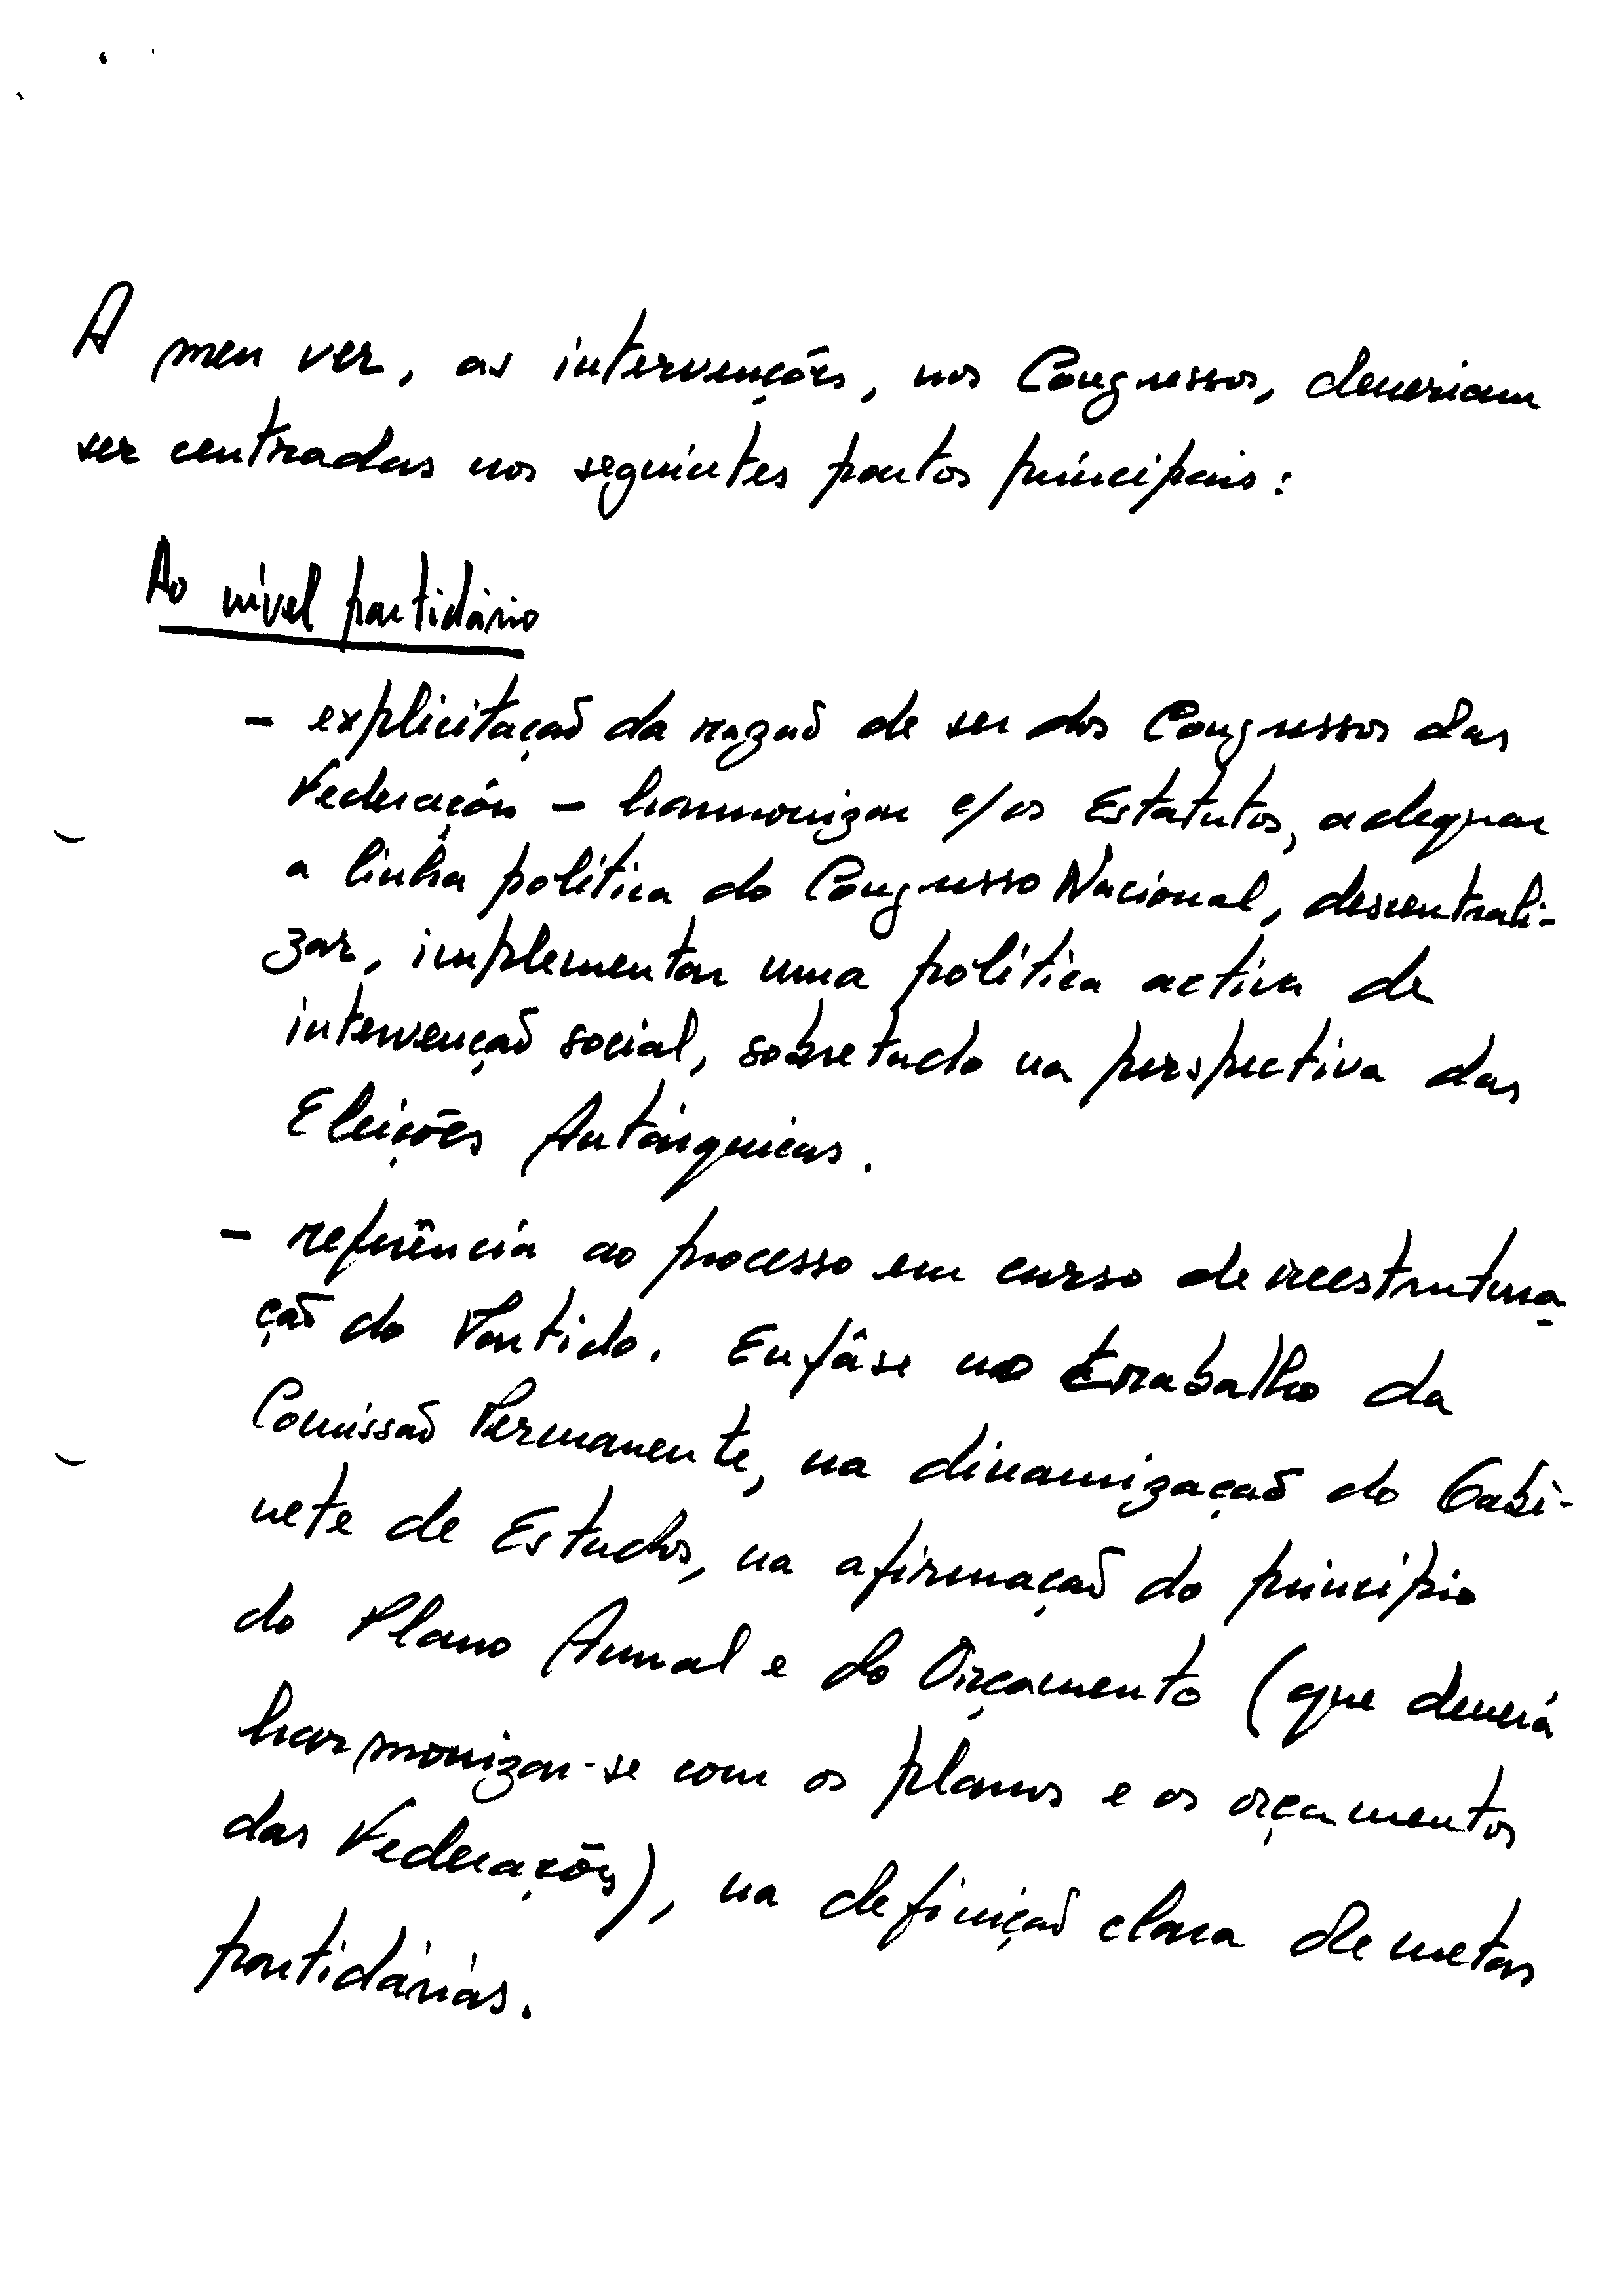 A meu ver, as intervenções, nos Congressos, deveriam
ser centradas nos seguintes pontos principais:
Ao nível partidário
- explicitação da razão de ser dos Congressos das
Federações - harmonizar c/os Estatutos, adequar
a linha política do Congresso Nacional, descentrali-
zar, implementar uma política activa de
intervenção social, sobretudo na perspectiva das
Eleições Autárquicas.
- referência ao processo em curso de reestrutura-
ção do Partido. Enfâse no trabalho da
Comissão Permanente, na dinamização do Gabi-
nete de Estudos, na afirmação do princípio
do Plano Anual e do Orçamento (que deverá
harmonizar-se com os planos e os orçamentos
das Federações), na definição clara de metas
partidárias.